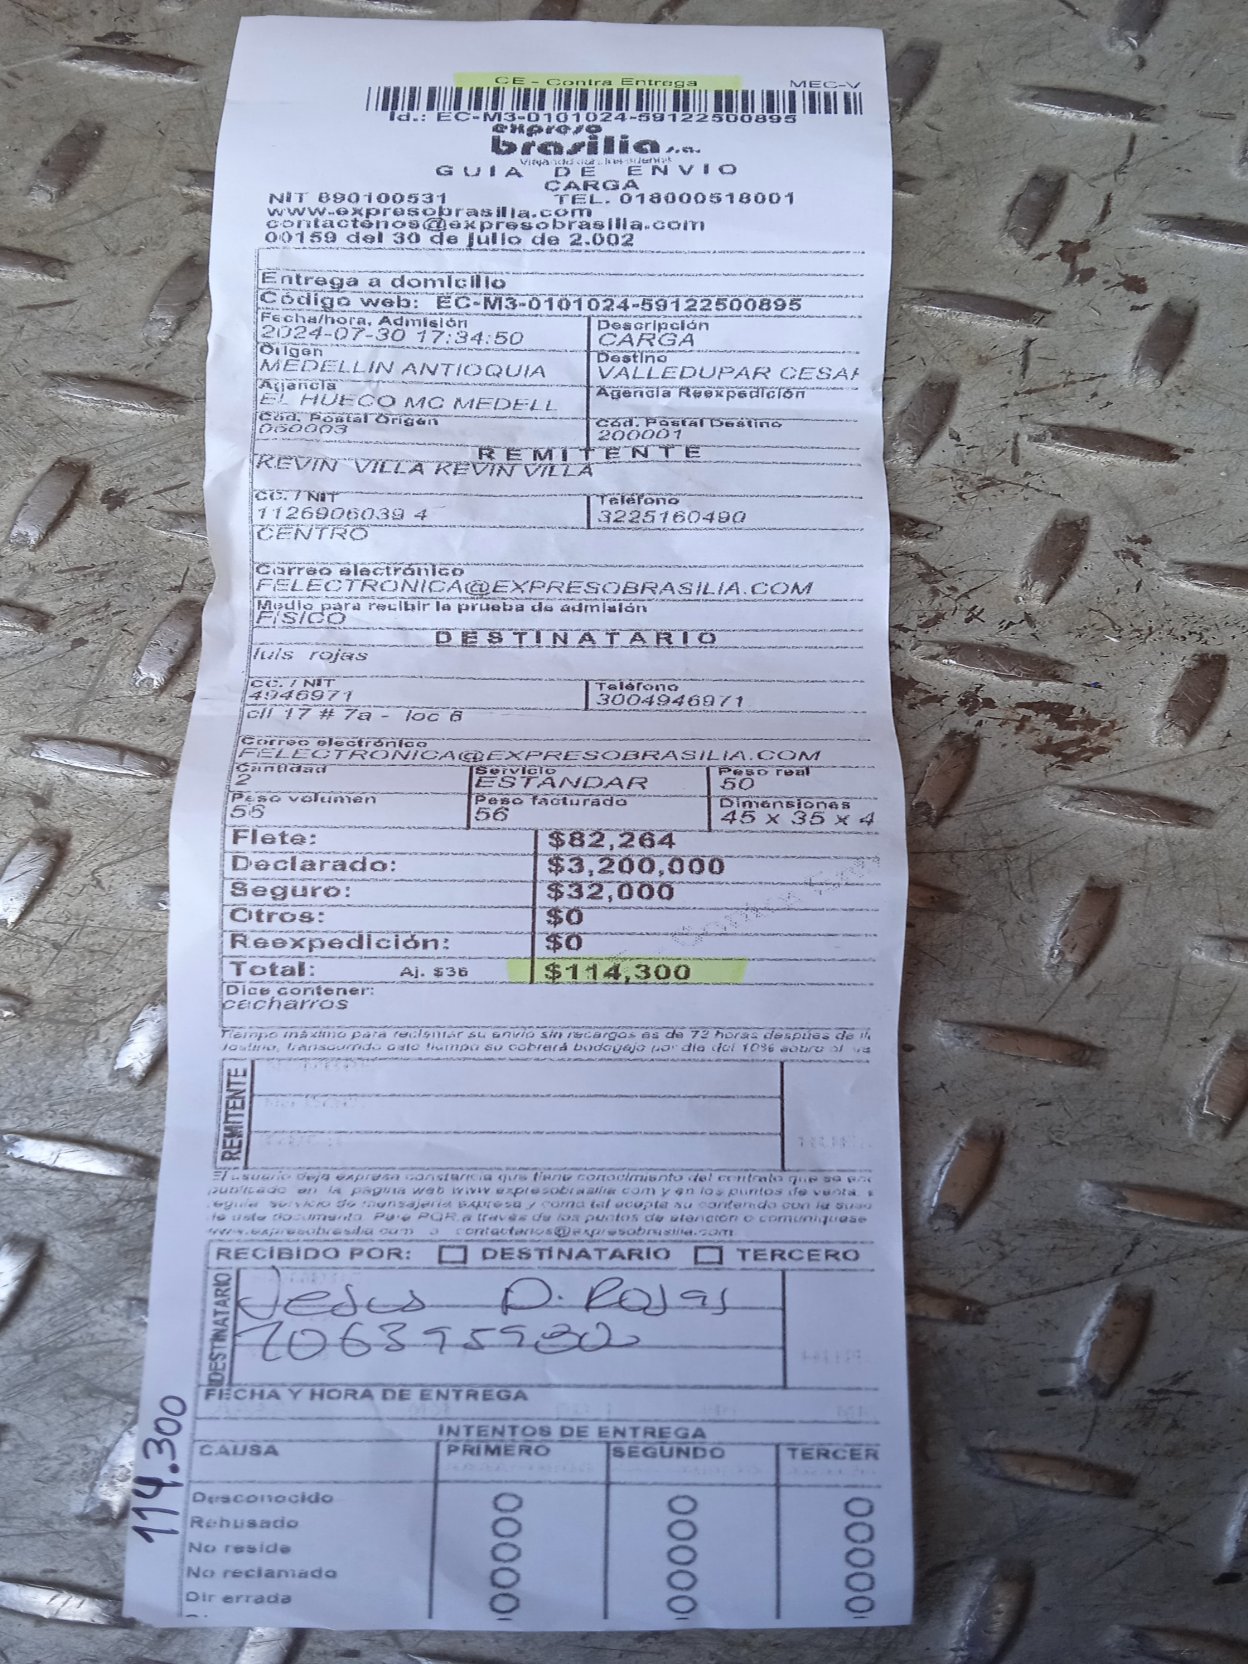 CE - Contra Entrega MEC-V
Id.: EC-M3-0101024-59122500895
expreso
brasilia s.a.
GUIA DE ENVIO
CARGA
NIT 890100531 TEL. 018000518001
www.expresobrasilia.com
contactenos@expresobrasilia.com
00159 del 30 de julio de 2.002
Entrega a domicilio
Código web: EC-M3-0101024-59122500895
Fecha/hora. Admisión Descripción
2024-07-30 17:34:50 CARGA
Origen Destino
MEDELLIN ANTIOQUIA VALLEDUPAR CESAR
Agencia Agencia Reexpedición
EL HUECO MC MEDELL
Cód. Postal Origen Cód. Postal Destino
050003 200001
REMITENTE
KEVIN VILLA KEVIN VILLA
CC. / NIT Teléfono
1126906039 4 3225160490
CENTRO
Correo electrónico
FELECTRONICA@EXPRESOBRASILIA.COM
Medio para recibir la prueba de admisión
FISICO
DESTINATARIO
luis rojas
CC. / NIT Teléfono
4946971 3004946971
cll 17 # 7a - loc 6
Correo electrónico
FELECTRONICA@EXPRESOBRASILIA.COM
Cantidad Servicio Peso real
2 ESTANDAR 50
Peso volumen Peso facturado Dimensiones
56 56 45 x 35 x 4
Flete: $82,264
Declarado: $3,200,000
Seguro: $32,000
Otros: $0
Reexpedición: $0
Total: Aj. $36 $114,300
Dice contener:
cacharros
Tiempo máximo para reclamar su envío sin recargos es de 72 horas después de
transcurrido este tiempo se cobrará bodegaje por día del 10% sobre el
REMITENTE
usuario deja expresa constancia que tiene conocimiento del contrato que se
publicado en la página web www expresobrasilia com y en los puntos de venta,
servicio de mensajería expresa y como tal acepta su contenido con la
de este documento. Para PQR a través de los puntos de atención o comuniquese
www.expresobrasilia.com contactenos@expresobrasilia.com
RECIBIDO POR: DESTINATARIO TERCERO
DESTINATARIO
Jesus D. Rojas
1063959302
FECHA Y HORA DE ENTREGA
INTENTOS DE ENTREGA
CAUSA PRIMERO SEGUNDO TERCER
Desconocido
Rehusado
No reside
No reclamado
Dir errada
114.300